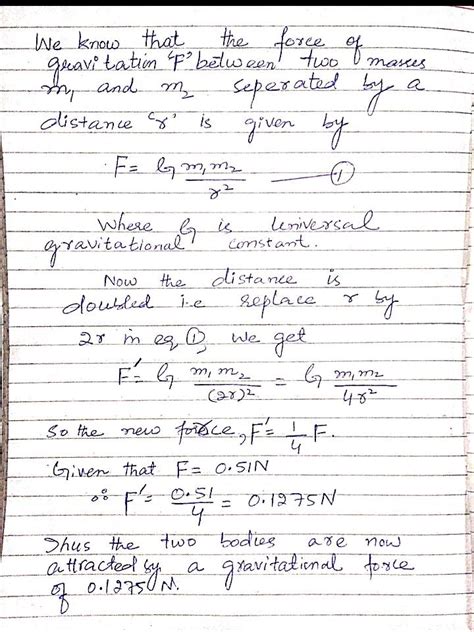 We know that the force of
gravitation 'F' between two masses
m₁ and m₂ seperated by a
distance 'r' is given by
F = G m₁m₂/r² —— ①
Where G is Universal
gravitational constant.
Now the distance is
doubled i.e replace r by
2r in eq ①, we get
F' = G m₁m₂/(2r)² = G m₁m₂/4r²
So the new force, F' = 1/4 F.
Given that F = 0.51N
∴ F' = 0.51/4 = 0.1275N
Thus the two bodies are now
attracted by a gravitational force
of 0.1275N.